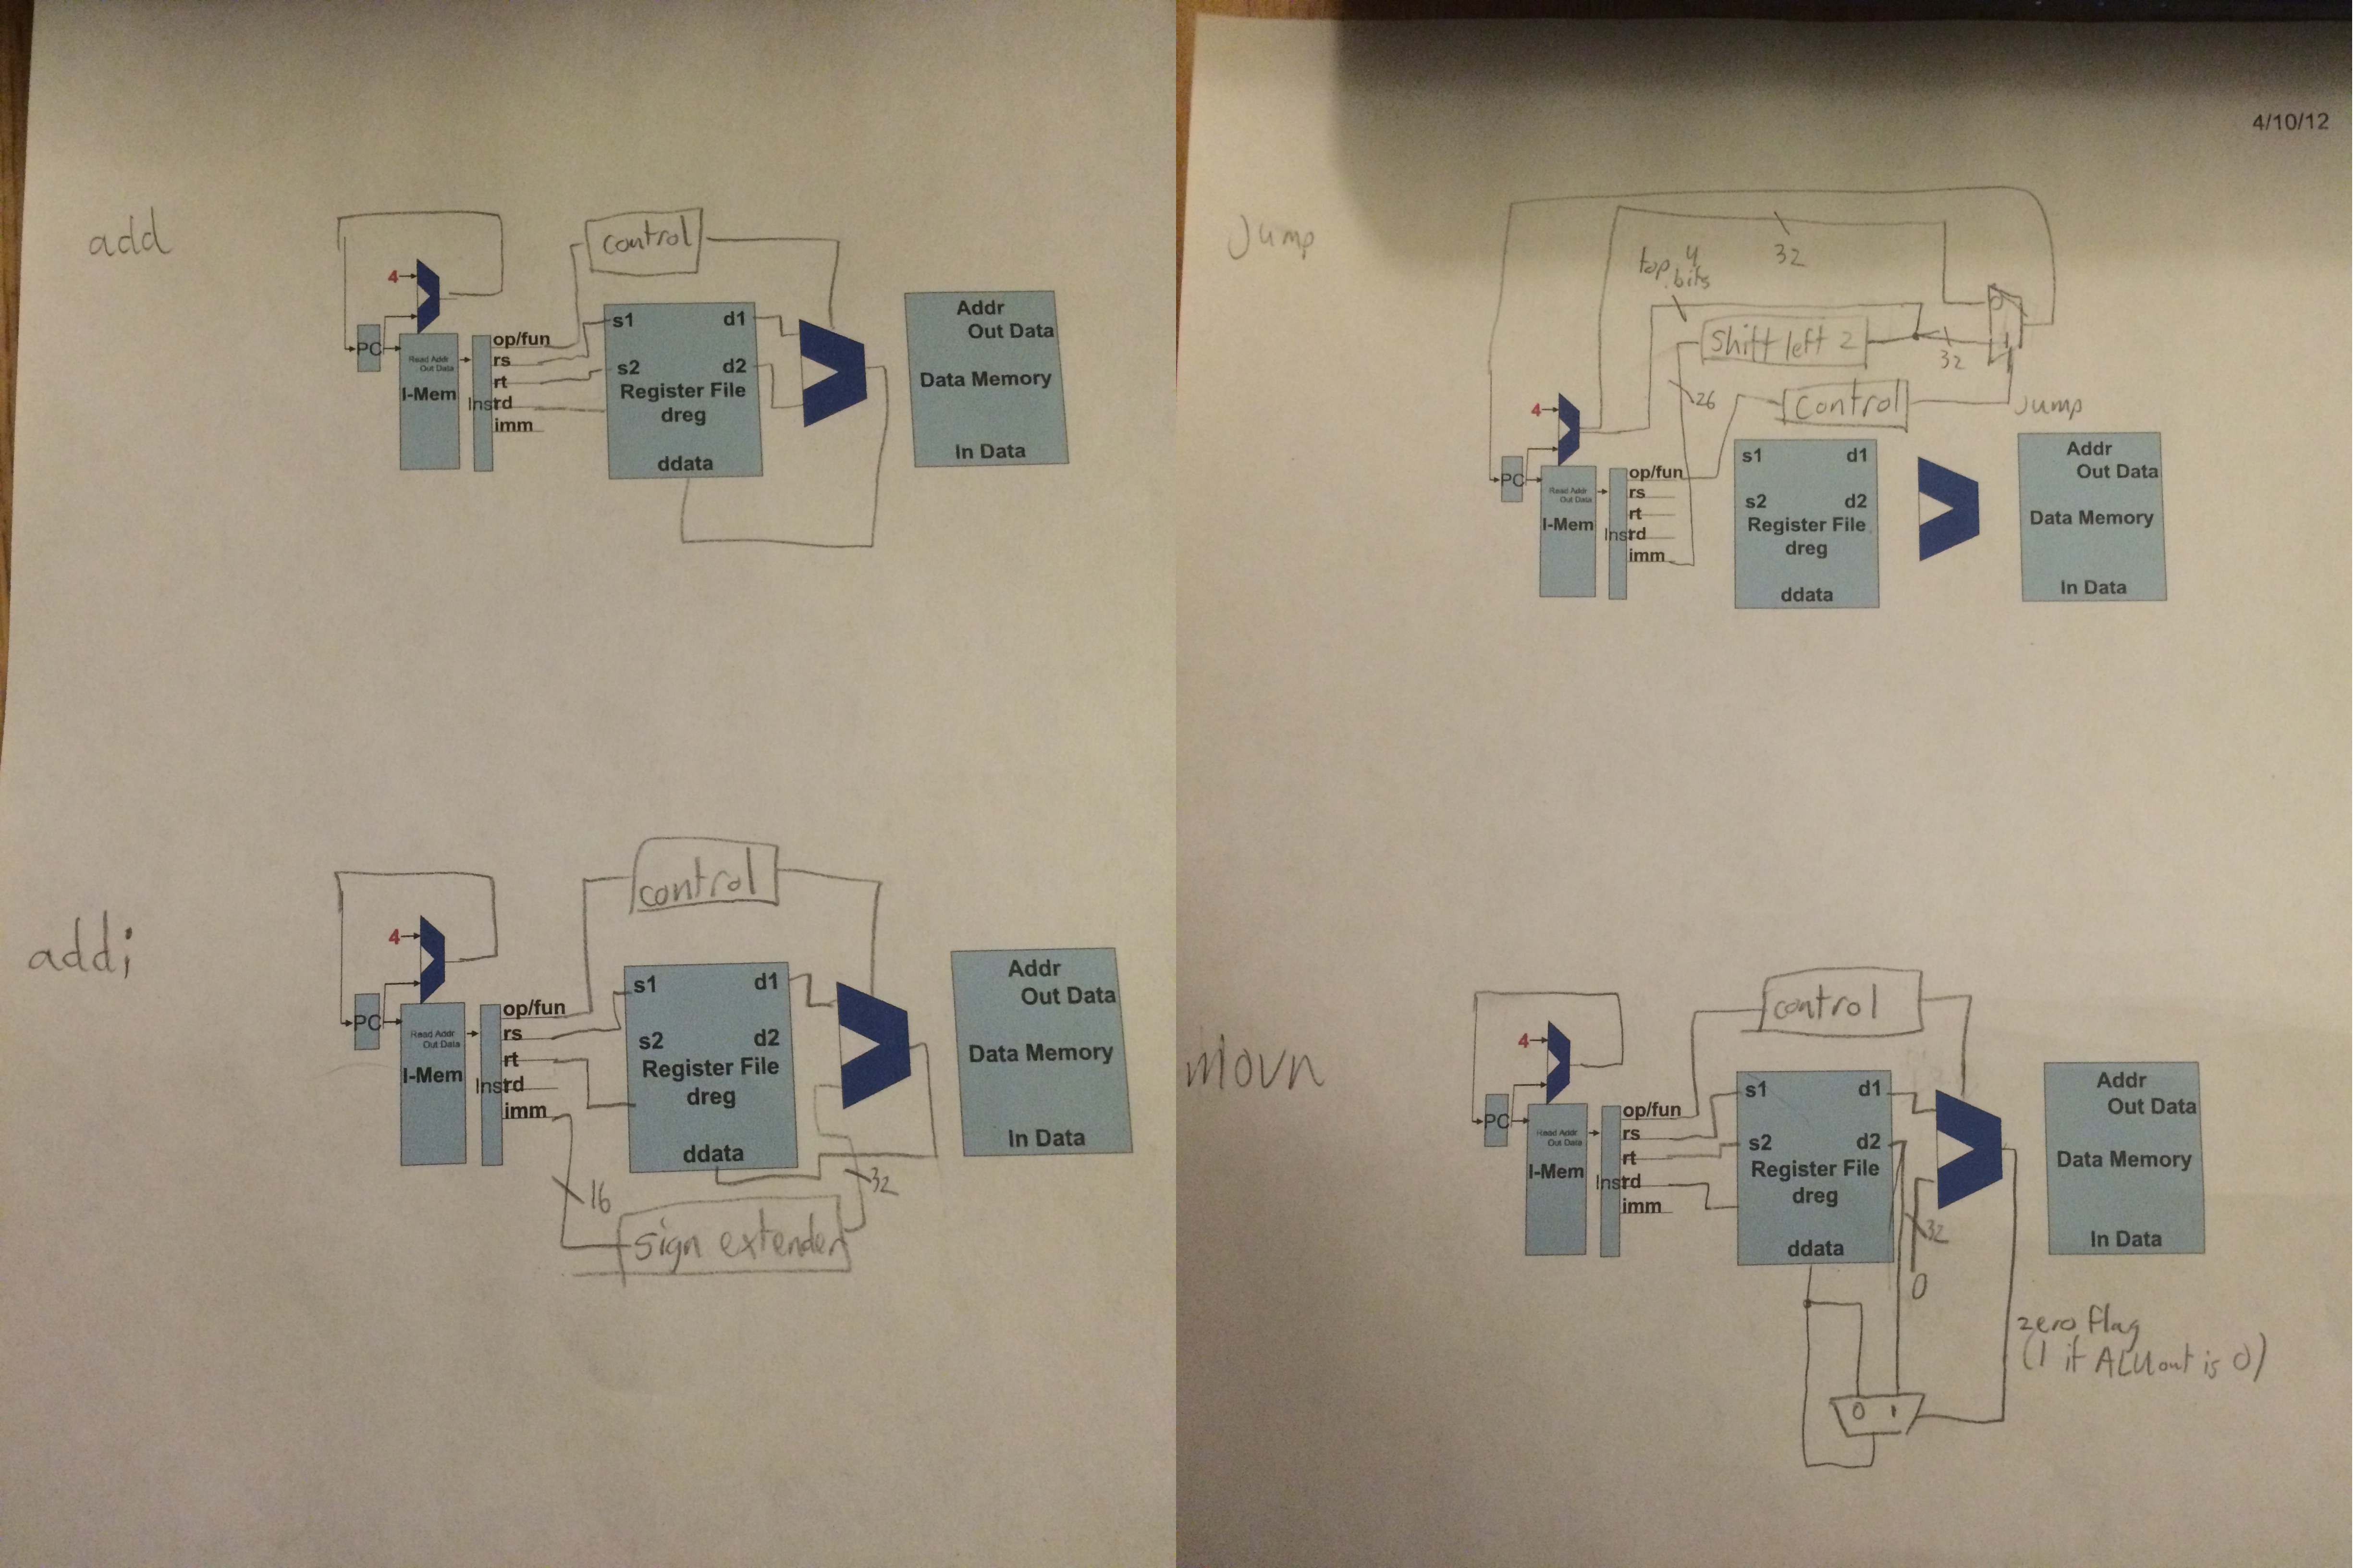 add
control
4
PC
Read Addr
Out Data
I-Mem
Instr
op/fun
rs
rt
rd
imm
s1 d1
s2 d2
Register File
dreg
ddata
Addr
Out Data
Data Memory
In Data
addi
control
4
PC
Read Addr
Out Data
I-Mem
Instr
op/fun
rs
rt
rd
imm
s1 d1
s2 d2
Register File
dreg
ddata
16
32
sign extender
Addr
Out Data
Data Memory
In Data
4/10/12
Jump
32
top 4
bits
shift left 2
32
0
1
26
control
Jump
4
PC
Read Addr
Out Data
I-Mem
Instr
op/fun
rs
rt
rd
imm
s1 d1
s2 d2
Register File
dreg
ddata
Addr
Out Data
Data Memory
In Data
movn
control
4
PC
Read Addr
Out Data
I-Mem
Instr
op/fun
rs
rt
rd
imm
s1 d1
s2 d2
Register File
dreg
ddata
32
0
zero flag
(1 if ALUout is 0)
0 1
Addr
Out Data
Data Memory
In Data